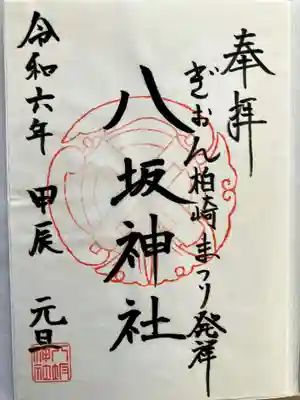 奉拝
ぎおん柏崎まつり発祥
八坂神社
令和六年 甲辰 元旦